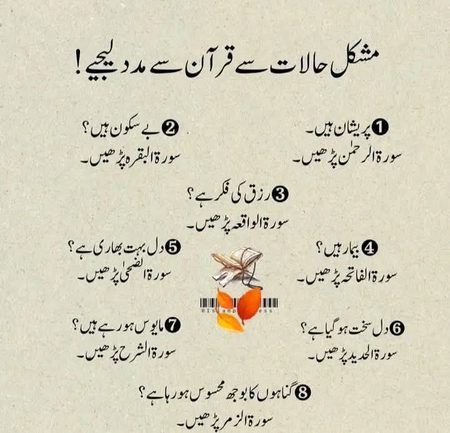 مشکل حالات سے قرآن سے مدد لیجیے!
❶ پریشان ہیں۔
سورۃ الرحمٰن پڑھیں۔
❷ بے سکون ہیں؟
سورۃ البقرہ پڑھیں۔
❸ رزق کی فکر ہے؟
سورۃ الواقعہ پڑھیں۔
❹ بیمار ہیں؟
سورۃ الفاتحہ پڑھیں۔
❺ دل بہت بھاری ہے؟
سورۃ الضحیٰ پڑھیں۔
❻ دل سخت ہو گیا ہے؟
سورۃ الحدید پڑھیں۔
❼ مایوس ہو رہے ہیں؟
سورۃ الشرح پڑھیں۔
❽ گناہوں کا بوجھ محسوس ہو رہا ہے؟
سورۃ الزمر پڑھیں۔